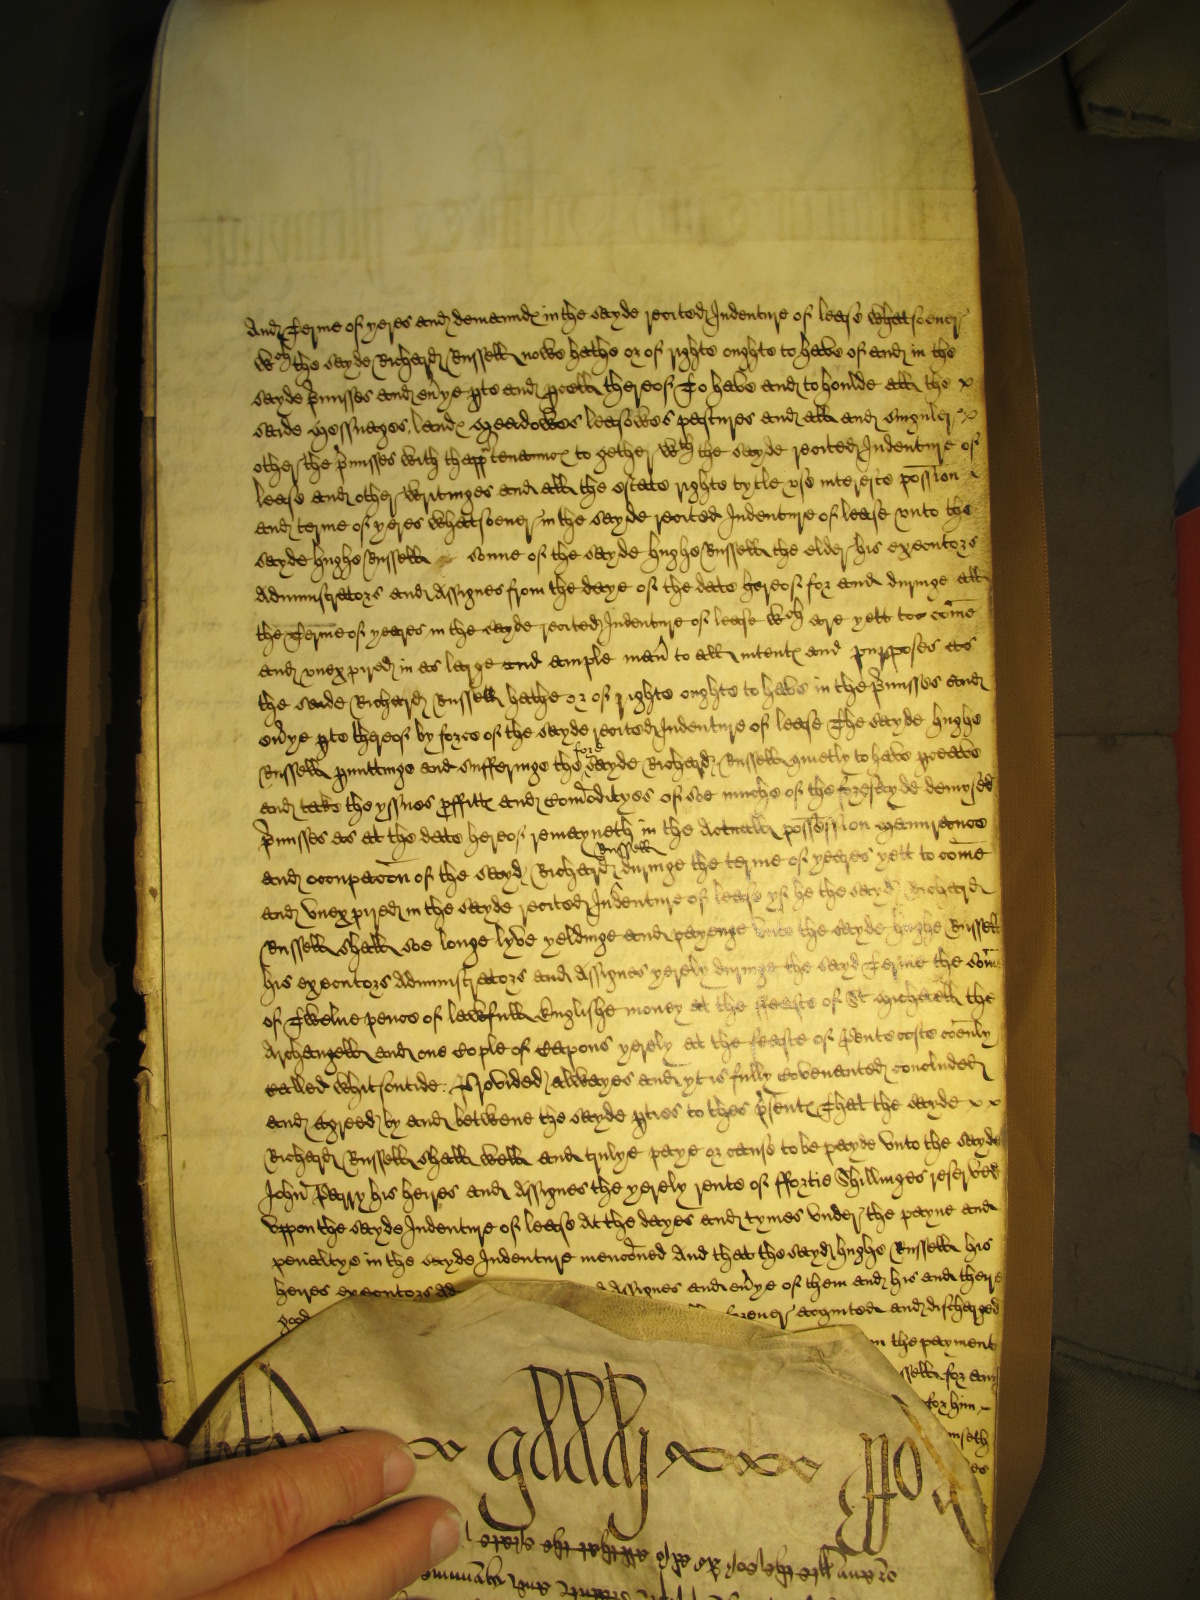 And Terme of yeres and demaund in the sayde recited Indenture of lease whatsoever
wch the sayde Richard Russell nowe hathe or of righte oughte to have of and in the
sayde pmisses and evye pte and pcell thereof To have and to houlde all the x
saide Messuages, land Meadowes leasowes pastures and all and singuler x
other the pmisses with thapptenannc to gether wth the sayde recited Indenture of
lease and other writinges and all the estate righte tytle use intereste possion x
and terme of yeres whatsoever in the sayde recited Indenture of lease unto the
sayde hughe Russell sonne of the sayde hughe Russell the elder his executors
Administrators and Assignes from the daye of the date hereof for and duringe all
the Terme of yeares in the sayde recited Indenture of lease wch are yett to come
and unexpired in as large and ample man to all intent and purposes as
the saide Richard Russell hathe or of righte oughte to have in the pmisses and
evye pte thereof by force of the sayde recited Indenture of lease The sayde hughe
Russell pmittinge and sufferinge the fore sayde Richard Russell quietly to have pceave
and take the yssues pffitt and comodityes of soe muche of the foresayde demysed
pmisses as at the date hereof remayneth in the Actuall possession Manurance
and occupacon of the sayd Richard Russell duringe the terme of yeares yett to come
and unexpired in the sayde recited Indenture of lease yf he the sayd Richard
Russell shall soe longe lyve yeldinge and payenge unto the sayde hughe Russell
his executors Administrators and Assignes yerely duringe the sayd Terme the som
of Twelve pence of lawfull Englishe money at the feaste of St Michaell the
Archangell and one Cople of Capons yerely at the feaste of Pentecoste coenly
called whitsontide: Provided alwayes and yt is fully Covenanted concluded
and agreed by and betwene the sayde pties to thes psent That the sayde x x
Richard Russell shall well and trulye paye or cause to be payde unto the sayde
John Parry his heires and Assignes the yerely rente of ffortie Shillinges reserved
uppon the sayde Indenture of lease At the dayes and tymes under the payne and
penaltye in the sayde Indenture menconed And that the sayd hughe Russell his
heires executors ad Assignes and evye of them and his and there
good acquited and discharged
the payment
for any
for him